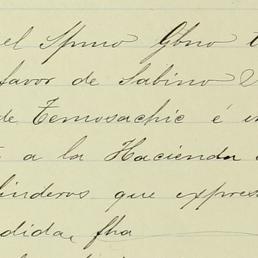 el Spmo Gbno
favor de Sabino
de Temosachic é
a la Hacienda
linderos que expres
dida, fha